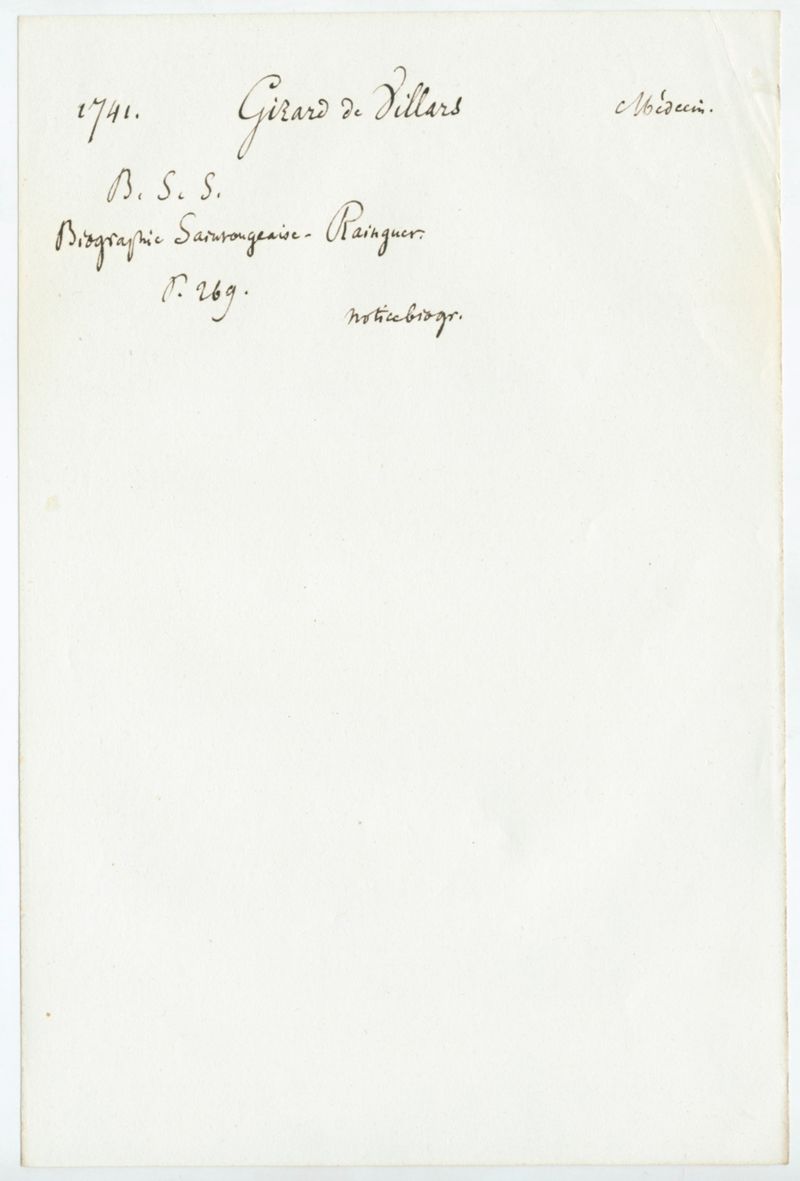 1741. Girard de Villars Médecin.
B. S. S.
Biographie Saintongeaise - Rainguet.
P. 269.
notice biogr.